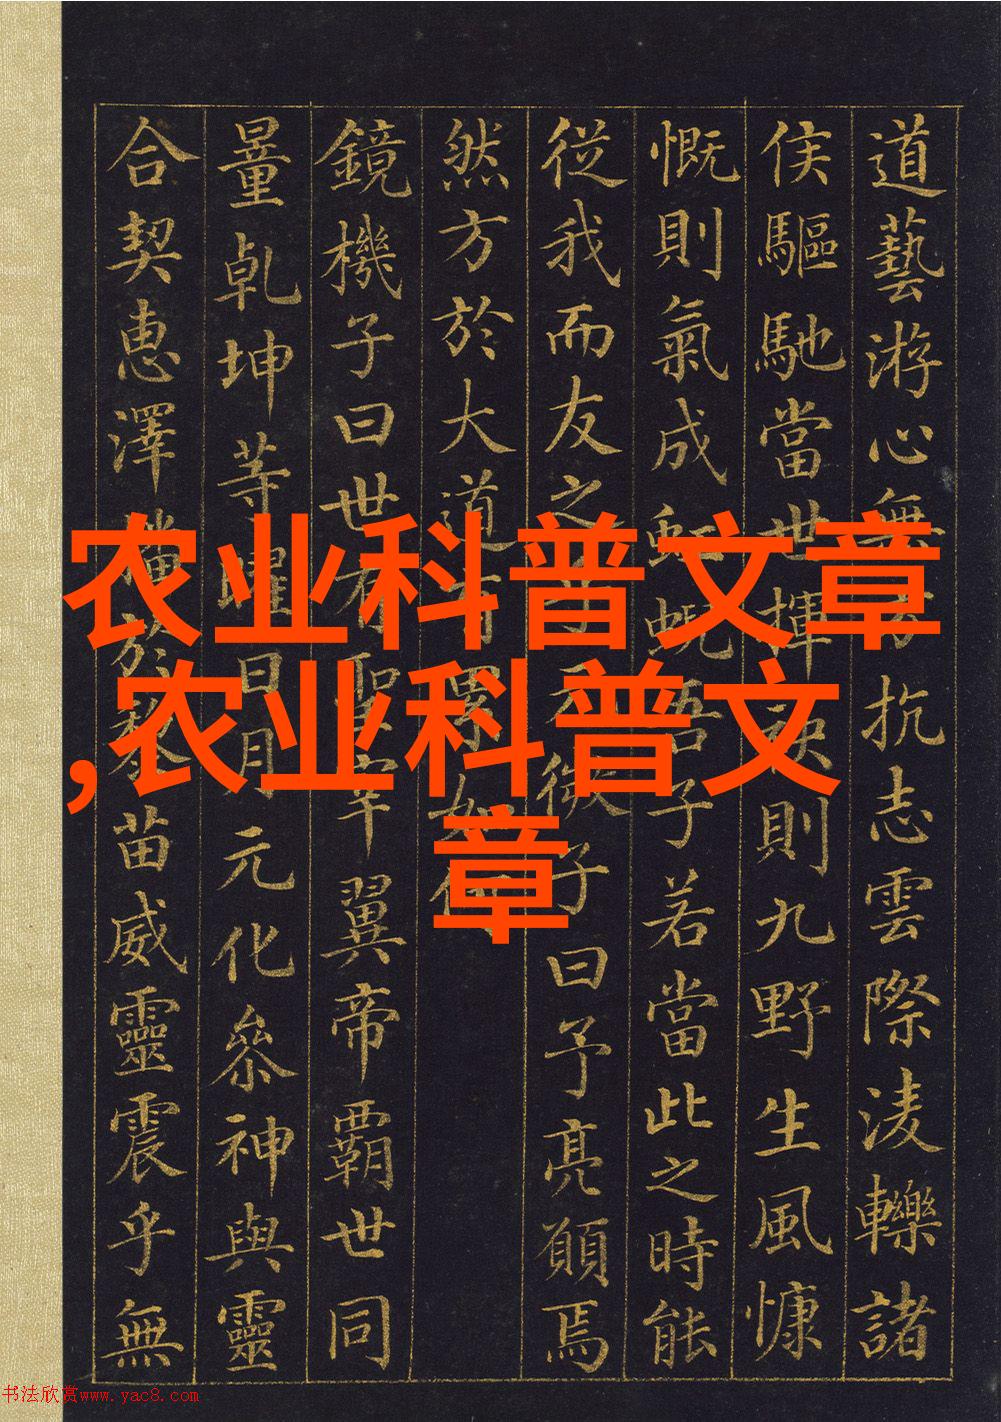 道藝游心無方抗志雲際淩轢諸
侯驅馳當世揮袂則九野生風慷
慨則氣成虹蜺吾子若當此之時能
從我而友之乎玄微子曰予亮願焉
然方於大道有累如何
鏡機子曰世有聖宰翼帝霸世同
量乾坤等曜日月元化參神與靈
合契惠澤播於黎苗威靈震乎無
农业科普文章
,农业科普文
章
书法欣赏www.yac8.com